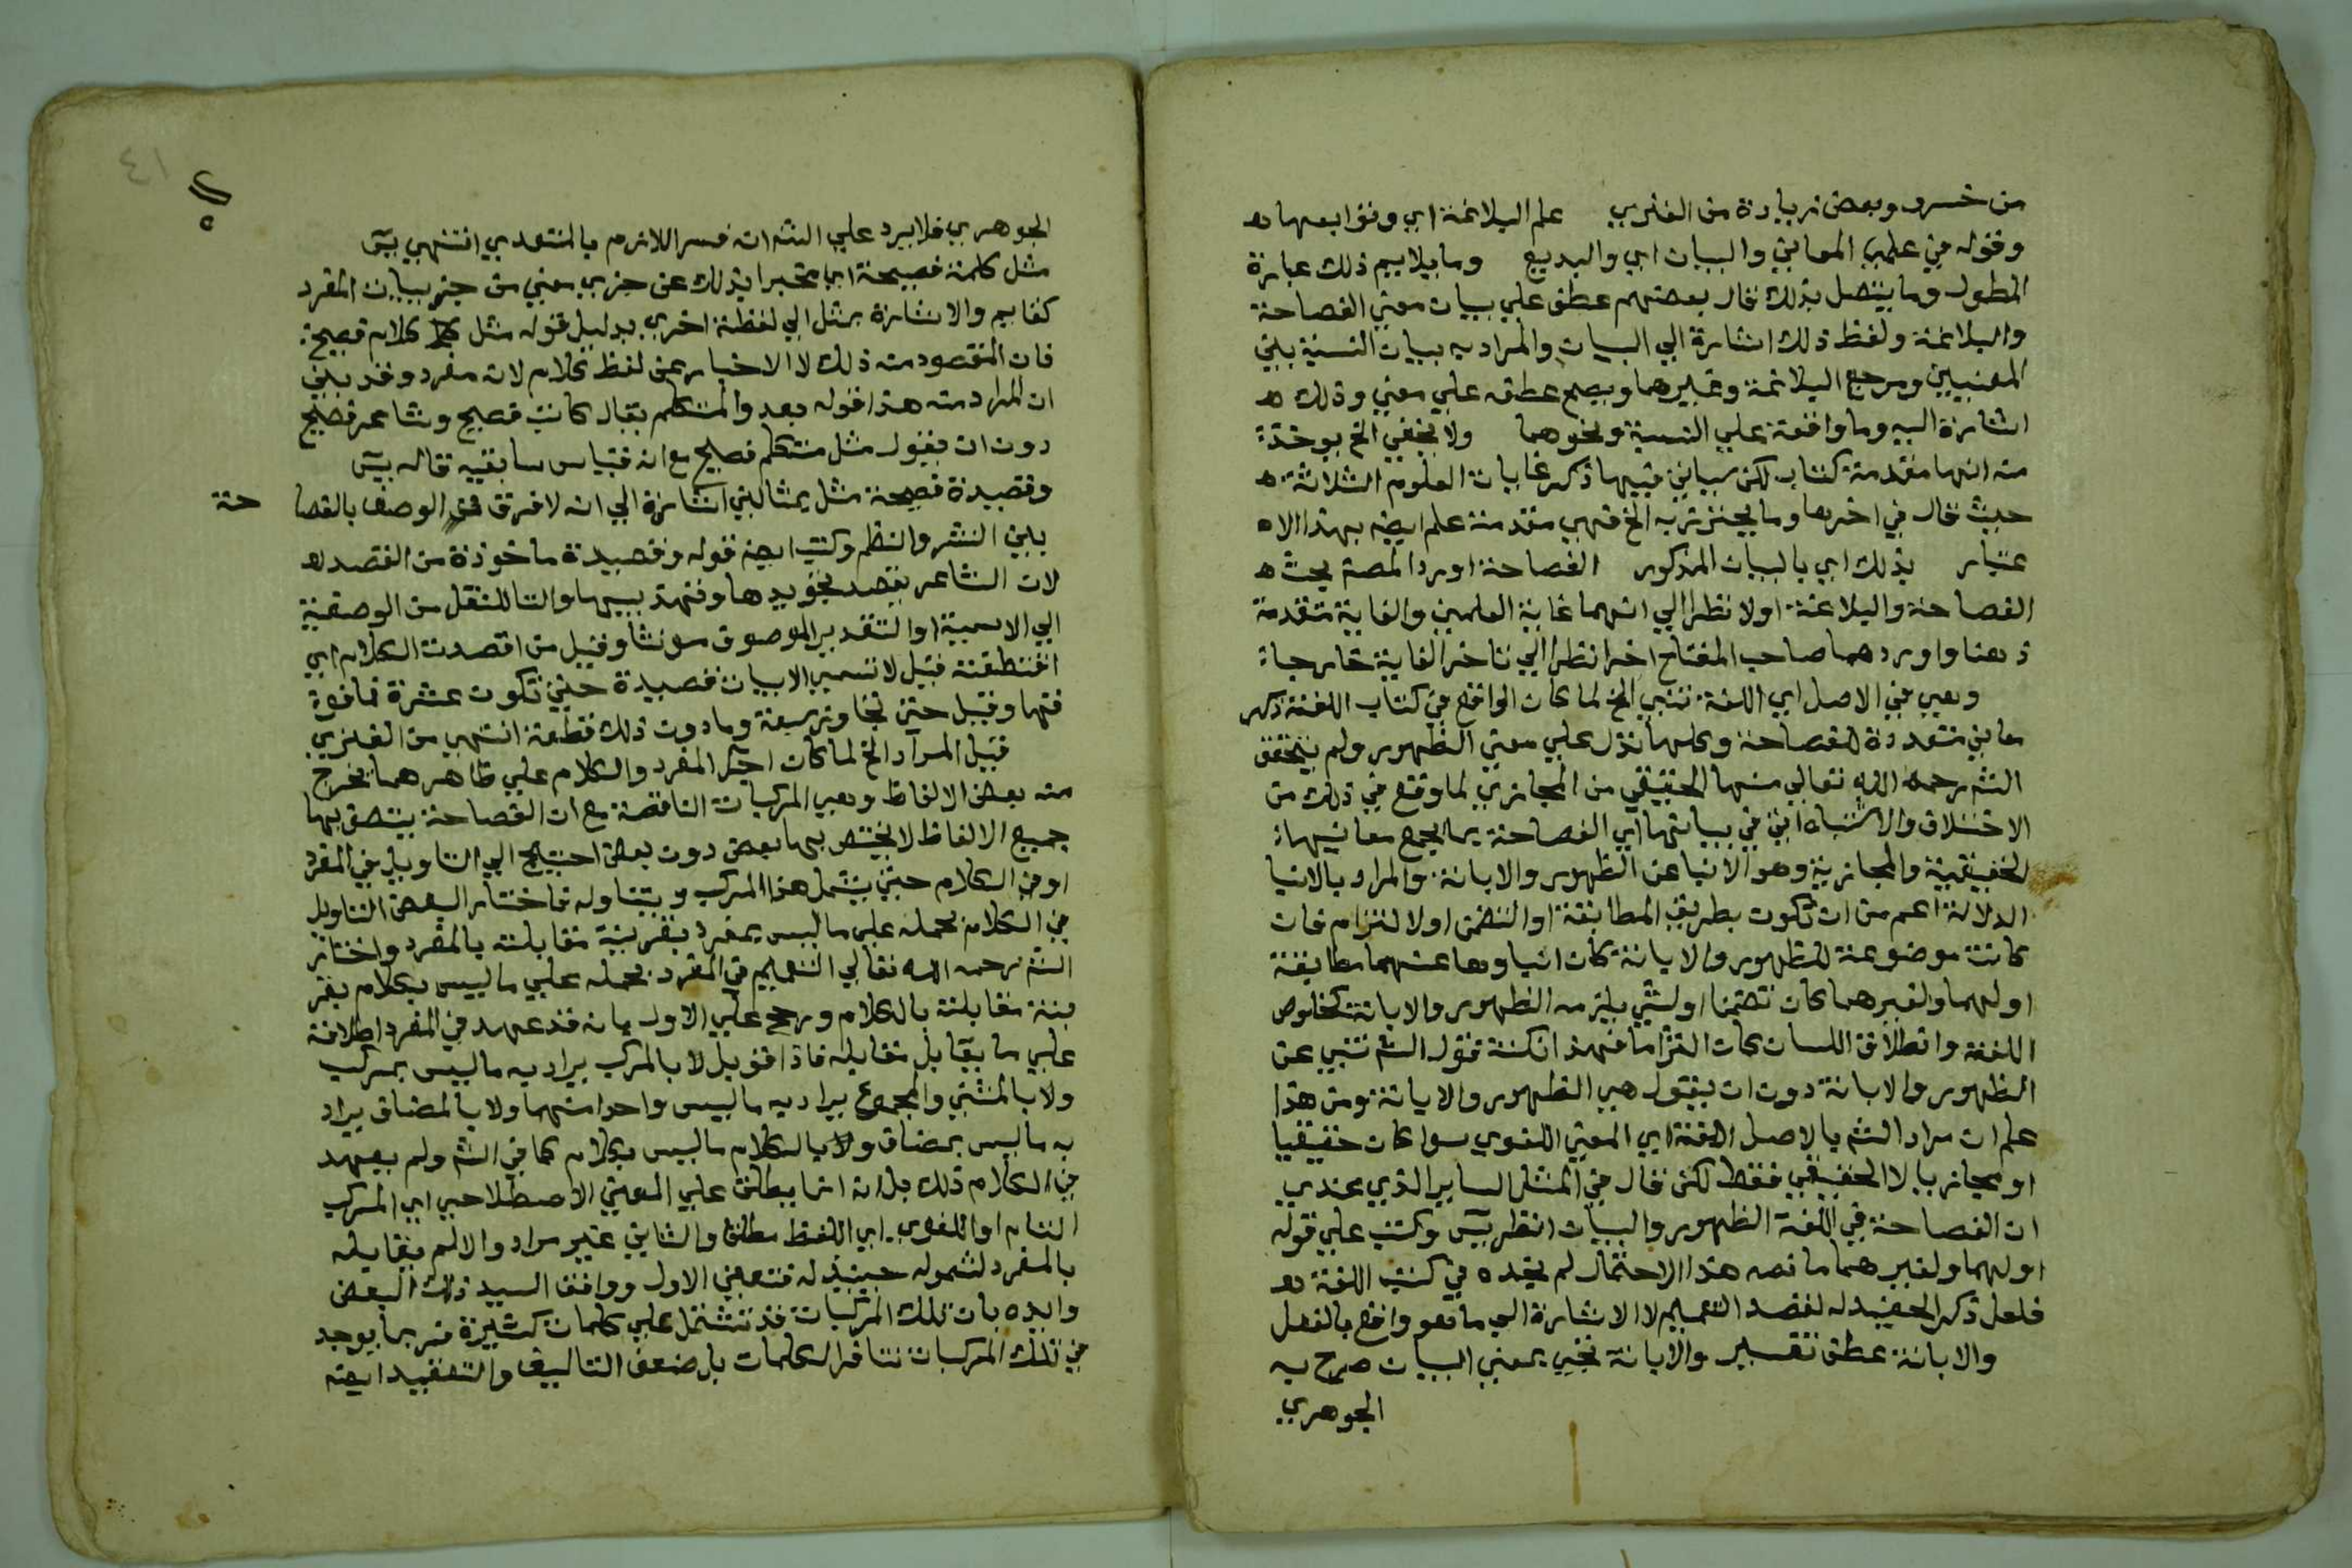 من خسرو وبعض زيادة من الفنري علم البلاغة اي وتوابعها ه
وقوله من علمي المعاني والبيان اي والبديع وما يلايم ذلك عبارة
المطول وما يتصل بذلك قال بعضهم عطف علي بيان معني الفصاحة
والبلاغة ولفظ ذلك اشارة الي البيان والمراد به بيان النسبة بين
المعنيين ومرجع البلاغة وغيرهما ويصح عطفه علي معني وذلك ه
اشارة اليه وما وافقة علي النسبة ونحوهما ولا يخفي الخ يوخذ
منه انها مقدمة كتاب لكن سياتي فيها ذكر غايات العلوم الثلاثة ه
حيث قال في اخرها وما يحترز به الخ فهي مقدمة علم ايضه بهذا الا ه
عتبار بذلك اي بالبيان المذكور الفصاحة اورد المصم بحث ه
الفصاحة والبلاغة اولا نظرا الي انهما غاية العلمين والغاية متقدمة
ذهنا واوردهما صاحب المفتاح اخرا نظرا الي تاخر الغاية خارجا
وهي في الاصل اي اللغة تنبي الخ لما كان الواقع في كتاب اللغة ذكر
معاني متعددة للفصاحة وكلها تدل علي معني الظهور ولم يتحقق
الشم رحمه الله تعالي منها الحقيقي من المجازي لما وقع في ذلك من
الاختلاف والاشتباه اتي في بيانها اي الفصاحة بما يجمع معانيها
الحقيقية والمجازية وهو الانبا عن الظهور والابانة والمراد بالانبا
الدلالة اعم من ان تكون بطريق المطابقة او التضمن اولا لتزام فان
كانت موضوعة للظهور والابانة كان انباوها عنهما مطابقة
اولهما ولغيرهما كان تضمنا او لشي يلزمه الظهور والابانة كخلوص
اللغة وانطلاق اللسان كان التزاما فهذا نكتة قول الشم تنبي عن
الظهور والابانة دون ان يقول هي الظهور والابانة ومن هذا
علم ان مراد الشم بالاصل اللغة اي المعني اللغوي سوا كان حقيقيا
او مجازيا لا الحقيقي فقط لكن قال في المثل الساير الذي عندي
ان الفصاحة في اللغة الظهور والبيان انظر يس وكتب علي قوله
اولهما ولغيرهما ما نصه هذا الاحتمال لم نجده في كتب اللغة ه
فلعل ذكر الحفيد له لقصد التعميم لا الاشارة الي ما هو واقع بالفعل
والابانة عطف تفسير والابانة تجي بمعني البيان صرح به
الجوهري
٤١
الجوهري فلا يرد علي الشم انه فسر اللازم بالمتعدي انتهي يس
مثل كلمة فصيحة اي مخبرا بذلك عن جزي معني من جزييات المفرد
كقايم والاشارة بمثل الي لفظة اخري بدليل قوله مثل كلام فصيح
فان المقصود منه ذلك لا الاخبار عن لفظ كلام لانه مفرد وقد يلي
ان المراد منه هذا قوله بعد والمتكلم يقال كاتب فصيح وشاعر فصيح
دون ان يقول مثل متكلم فصيح مع انه قياس سابقيه قاله يس
وقصيدة فصيحة مثل بمثالين اشارة الي انه لا فرق في الوصف بالفصا حة
بين النثر والنظم وكتب ايضه قوله وقصيدة ماخوذة من القصد ه
لان الشاعر يقصد تجويدها وتهذيبها والتا للنقل من الوصفية
الي الاسمية او التقدير الموصوف مونثا وقيل من اقصدت الكلام اي
اقتطعته قيل لا تسمي الابيات قصيدة حتي تكون عشرة فما فوق
فتها وقيل حتي تجاوز سبعة وما دون ذلك قطعة انتهي من الفنري
قيل المراد الخ لما كان اجرا المفرد والكلام علي ظاهرهما يخرج
منه بعض الالفاظ وهي المركبات الناقصة مع ان الفصاحة يتصف بها
جميع الالفاظ لا يختص بها بعض دون بعض احتيج الي التاويل في المفرد
او في الكلام حتي يشمل هذا المركب ويتناوله فاختار البعض التاويل
في الكلام بحمله علي ما ليس بمفرد بقرينة مقابلته بالمفرد واختار
الشم رحمه الله تعالي التعميم في المفرد بحمله علي ما ليس بكلام بقر
ينة مقابلته بالكلام ورجح علي الاول بانه قد عهد في المفرد اطلاقه
علي ما يقابل مقابله فاذا قوبل لا بالمركب يراد به ما ليس بمركب
ولا بالمثني والمجموع يراد به ما ليس واحدا منهما ولا بالمضاف يراد
به ما ليس بمضاف ولا بالكلام ما ليس بكلام كما في الشم ولم يعهد
في الكلام ذلك بل انه انما يطلق علي المعني الاصطلاحي اي المركب
التام او اللغوي اي اللفظ مطلقا والثاني غير مراد والالم يقابله
بالمفرد لشموله حينيذ له فتعين الاول ووافق السيد ذلك البعض
وايده بان تلك المركبات قد تشتمل علي كلمات كثيرة فربما يوجد
في تلك المركبات تنافر الكلمات بل ضعف التاليف والتعقيد ايضه